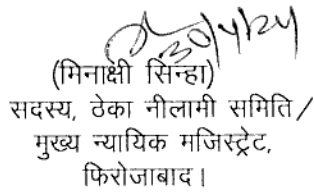 30/4/24
(मिनाक्षी सिन्हा)
सदस्य, ठेका नीलामी समिति/
मुख्य न्यायिक मजिस्ट्रेट,
फिरोजाबाद।